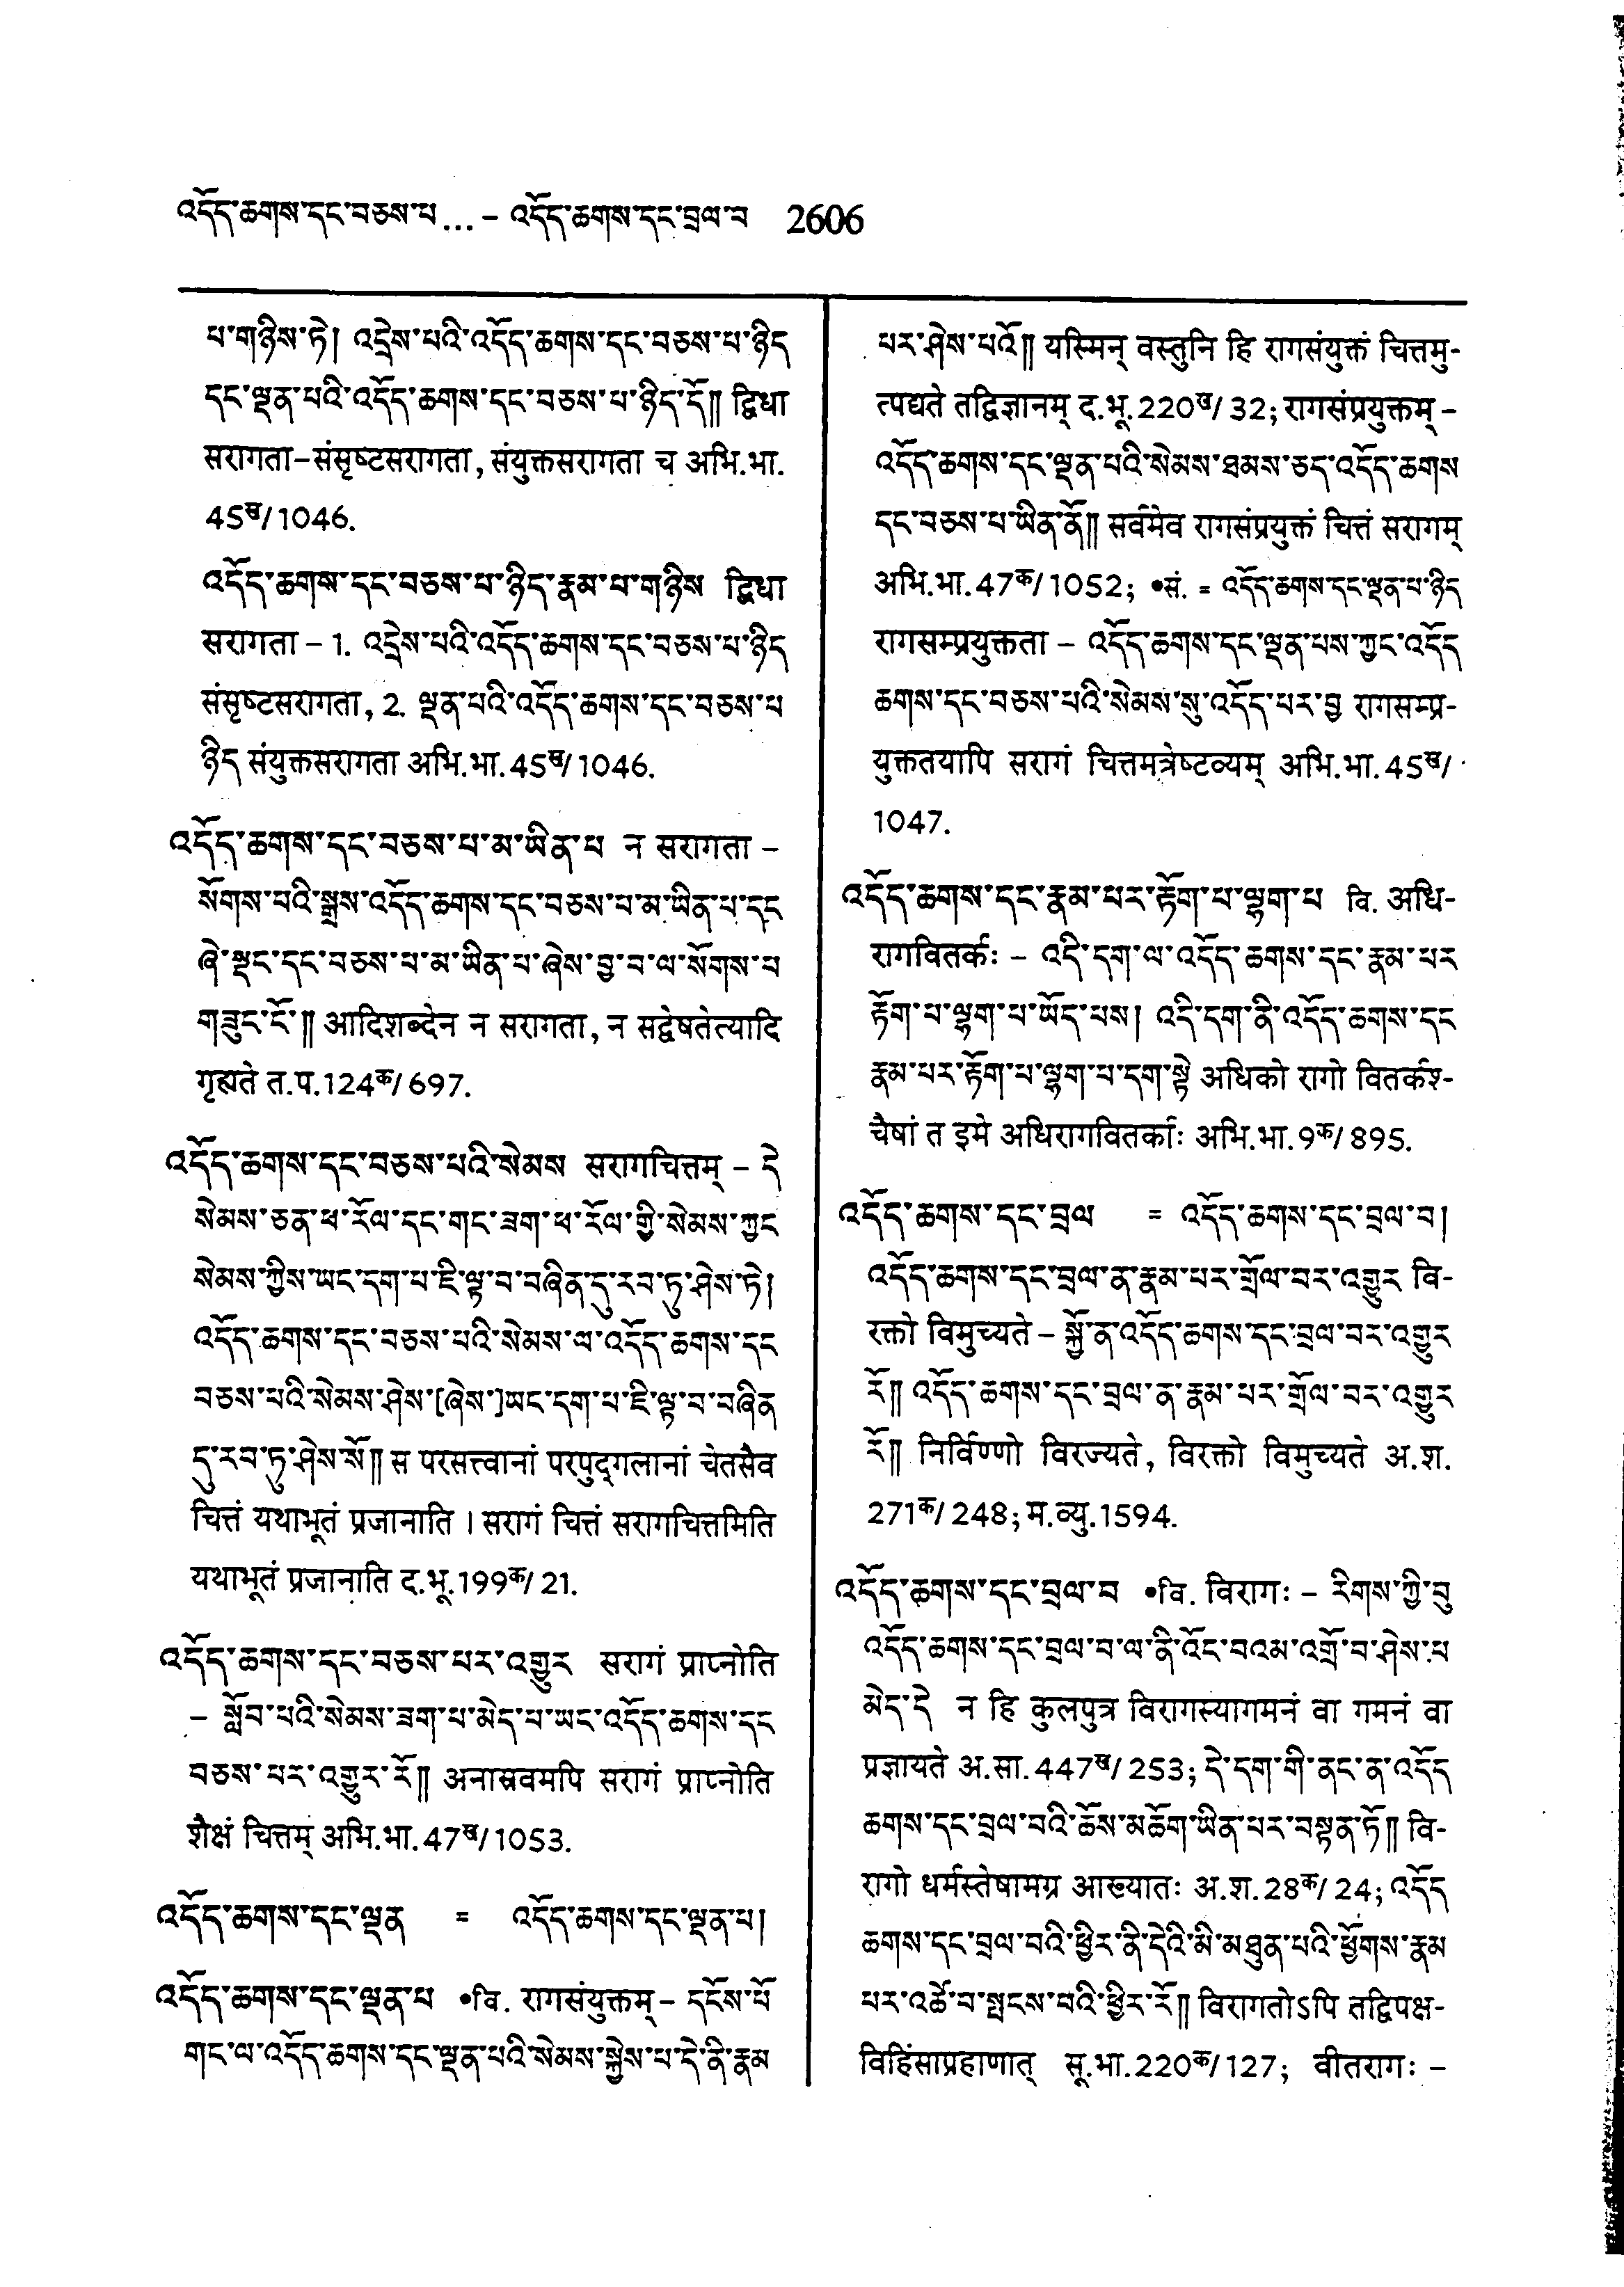 འདོད་ཆགས་དང་བཅས་པ...– འདོད་ཆགས་དང་བྲལ་བ 2606
པ་གཉིས་ཏེ། འདྲེས་པའི་འདོད་ཆགས་དང་བཅས་པ་ཉིད
དང་ལྡན་པའི་འདོད་ཆགས་དང་བཅས་པ་ཉིད་དོ༎ द्विधा
सरागता–संसृष्टसरागता, संयुक्तसरागता च अभि.भा.
45ख/1046.
འདོད་ཆགས་དང་བཅས་པ་ཉིད་རྣམ་པ་གཉིས द्विधा
सरागता – 1. འདྲེས་པའི་འདོད་ཆགས་དང་བཅས་པ་ཉིད
संसृष्टसरागता, 2. ལྡན་པའི་འདོད་ཆགས་དང་བཅས་པ
ཉིད संयुक्तसरागता अभि.भा.45ख/1046.
འདོད་ཆགས་དང་བཅས་པ་མ་ཡིན་པ न सरागता –
སོགས་པའི་སྒྲས་འདོད་ཆགས་དང་བཅས་པ་མ་ཡིན་པ་དང
ཞེ་སྡང་དང་བཅས་པ་མ་ཡིན་པ་ཞེས་བྱ་བ་ལ་སོགས་པ
གཟུང་ངོ་༎ आदिशब्देन न सरागता, न सद्वेषतेत्यादि
गृह्यते त.प.124क/697.
འདོད་ཆགས་དང་བཅས་པའི་སེམས सरागचित्तम् – དེ
སེམས་ཅན་ཕ་རོལ་དང་གང་ཟག་ཕ་རོལ་གྱི་སེམས་ཀྱང
སེམས་ཀྱིས་ཡང་དག་པ་ཇི་ལྟ་བ་བཞིན་དུ་རབ་ཏུ་ཤེས་ཏེ།
འདོད་ཆགས་དང་བཅས་པའི་སེམས་ལ་འདོད་ཆགས་དང
བཅས་པའི་སེམས་ཤེས་[ཞེས་]ཡང་དག་པ་ཇི་ལྟ་བ་བཞིན
དུ་རབ་ཏུ་ཤེས་སོ༎ स परसत्त्वानां परपुद्गलानां चेतसैव
चित्तं यथाभूतं प्रजानाति । सरागं चित्तं सरागचित्तमिति
यथाभूतं प्रजानाति द.भू.199क/21.
འདོད་ཆགས་དང་བཅས་པར་འགྱུར सरागं प्राप्नोति
– སློབ་པའི་སེམས་ཟག་པ་མེད་པ་ཡང་འདོད་ཆགས་དང
བཅས་པར་འགྱུར་རོ༎ अनास्रवमपि सरागं प्राप्नोति
शैक्षं चित्तम् अभि.भा.47ख/1053.
འདོད་ཆགས་དང་ལྡན = འདོད་ཆགས་དང་ལྡན་པ།
འདོད་ཆགས་དང་ལྡན་པ •वि. रागसंयुक्तम् – དངོས་པོ
གང་ལ་འདོད་ཆགས་དང་ལྡན་པའི་སེམས་སྐྱེས་པ་དེ་ནི་རྣམ
པར་ཤེས་པའོ༎ यस्मिन् वस्तुनि हि रागसंयुक्तं चित्तमु-
त्पद्यते तद्विज्ञानम् द.भू.220ख/32; रागसंप्रयुक्तम् –
འདོད་ཆགས་དང་ལྡན་པའི་སེམས་ཐམས་ཅད་འདོད་ཆགས
དང་བཅས་པ་ཡིན་ནོ༎ सर्वमेव रागसंप्रयुक्तं चित्तं सरागम्
अभि.भा.47क/1052; •सं. = འདོད་ཆགས་དང་ལྡན་པ་ཉིད
रागसम्प्रयुक्तता – འདོད་ཆགས་དང་ལྡན་པས་ཀྱང་འདོད
ཆགས་དང་བཅས་པའི་སེམས་སུ་འདོད་པར་བྱ रागसम्प्र-
युक्ततयापि सरागं चित्तमत्रेष्टव्यम् अभि.भा.45ख/
1047.
འདོད་ཆགས་དང་རྣམ་པར་རྟོག་པ་ལྷག་པ वि. अधि-
रागवितर्कः – འདི་དག་ལ་འདོད་ཆགས་དང་རྣམ་པར
རྟོག་པ་ལྷག་པ་ཡོད་པས། འདི་དག་ནི་འདོད་ཆགས་དང
རྣམ་པར་རྟོག་པ་ལྷག་པ་དག་སྟེ अधिको रागो वितर्कश्-
चैषां त इमे अधिरागवितर्काः अभि.भा.9क/895.
འདོད་ཆགས་དང་བྲལ = འདོད་ཆགས་དང་བྲལ་བ།
འདོད་ཆགས་དང་བྲལ་ན་རྣམ་པར་གྲོལ་བར་འགྱུར वि-
रक्तो विमुच्यते – སྐྱོ་ན་འདོད་ཆགས་དང་བྲལ་བར་འགྱུར
རོ༎ འདོད་ཆགས་དང་བྲལ་ན་རྣམ་པར་གྲོལ་བར་འགྱུར
རོ༎ निर्विण्णो विरज्यते, विरक्तो विमुच्यते अ.श.
271क/248; म.व्यु.1594.
འདོད་ཆགས་དང་བྲལ་བ •वि. विरागः – རིགས་ཀྱི་བུ
འདོད་ཆགས་དང་བྲལ་བ་ལ་ནི་འོང་བའམ་འགྲོ་བ་ཤེས་པ
མེད་དེ न हि कुलपुत्र विरागस्यागमनं वा गमनं वा
प्रज्ञायते अ.सा.447ख/253; དེ་དག་གི་ནང་ན་འདོད
ཆགས་དང་བྲལ་བའི་ཆོས་མཆོག་ཡིན་པར་བསྟན་ཏོ༎ वि-
रागो धर्मस्तेषामग्र आख्यातः अ.श.28क/24; འདོད
ཆགས་དང་བྲལ་བའི་ཕྱིར་ནི་དེའི་མི་མཐུན་པའི་ཕྱོགས་རྣམ
པར་འཚེ་བ་སྤངས་བའི་ཕྱིར་རོ༎ विरागतोऽपि तद्विपक्ष-
विहिंसाप्रहाणात् सू.भा.220क/127; वीतरागः –